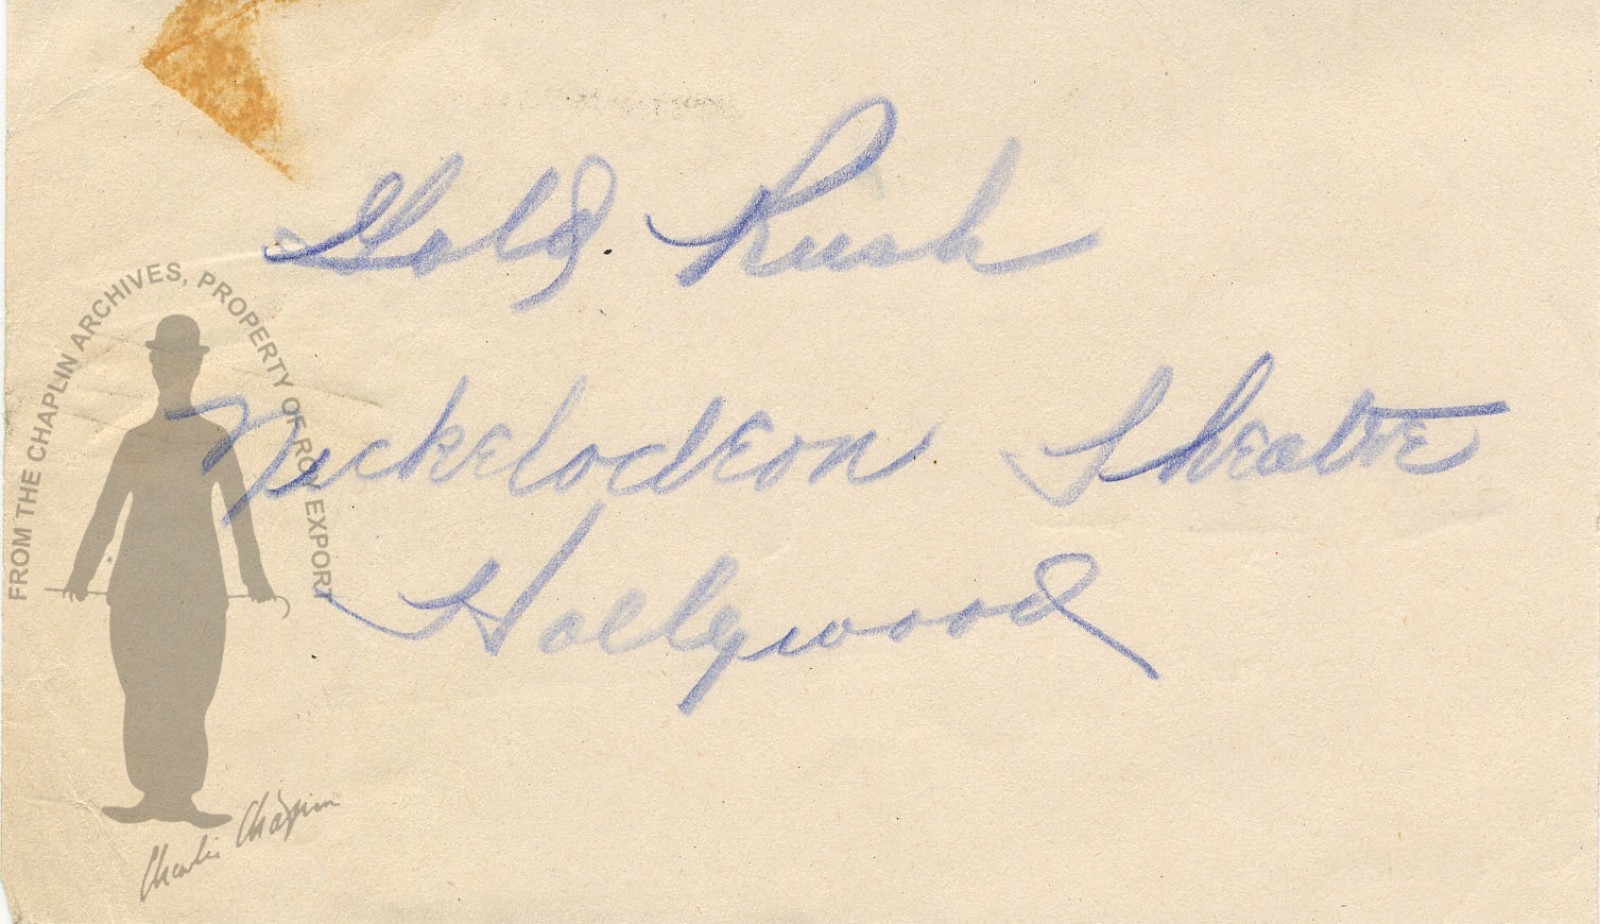 Gold Rush
Nickelodeon Theatre
Hollywood
FROM THE CHAPLIN ARCHIVES, PROPERTY OF ROY EXPORT
Charlie Chaplin